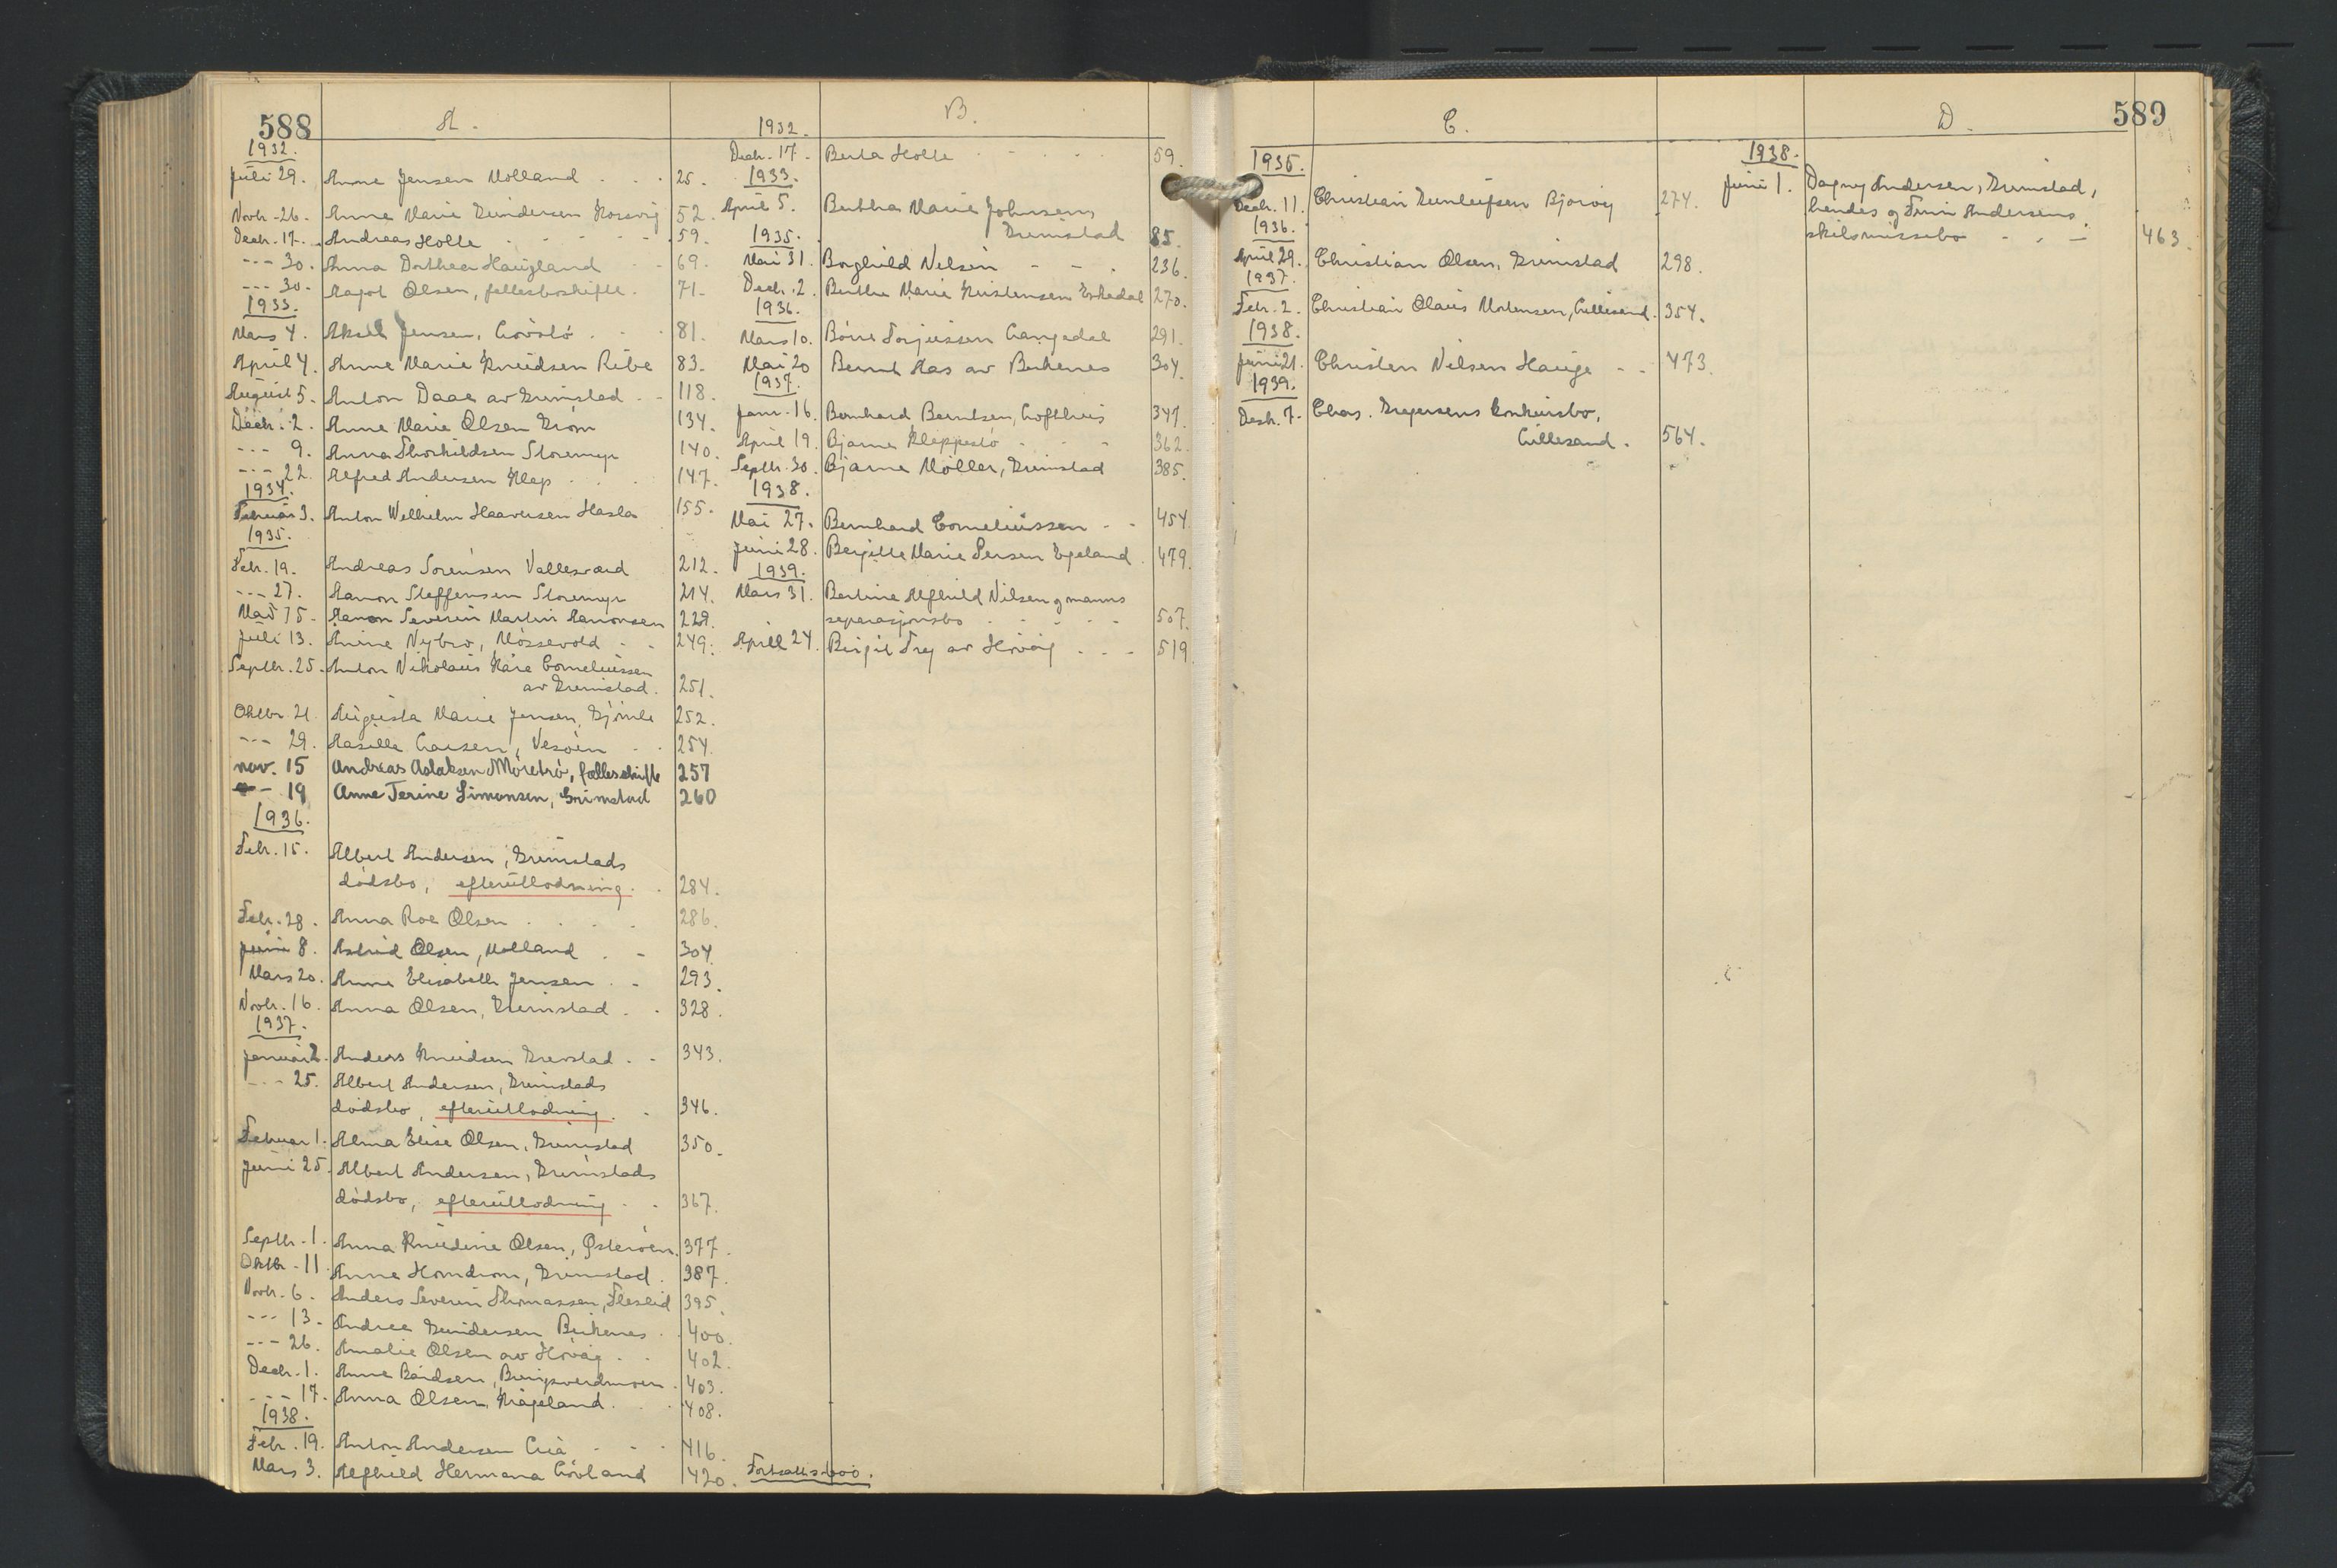 588
A.
1932.
Juli 29. Anne Jensen Molland . . . 25.
Novbr. 26. Anne Marie Gundersen Kosvig 52.
Decbr. 17. Andreas Holte 59.
--- 30. Anna Dorthea Haugland 69.
--- 30. Aagot Olsen, fellesboskifte. 71.
1933.
Mars 4. Aksel Jensen, 81.
April 4. Anne Marie Knudsen Ribe 83.
August 5. Anton Daae av Grimstad 118.
Decbr. 2. Anne Marie Olsen Grøm 134.
--- 9. Anna Thorkildsen Storemyr 140.
--- 22. Alfred Andersen Klep 147.
1934.
Februar 3. Anton Wilhelm Haavorsen Hasla 155.
1935.
Febr. 19. Andreas Sørensen Vallesværd 212.
--- 27. Aanon Steffensen Storemyr 214.
Mai 15. Aanon Severin Martin Aanonsen 229.
Juli 13. Anine Nybro, Mossevold 249.
Septbr. 25. Anton Nikolaus Kåre Corneliussen
av Grimstad. 251.
Oktbr 21. Augusta Marie Jensen, Gjømle 252.
--- 29. Aasille Larsen, Vesøen 254.
nov. 15 Andreas Aslaksen Møretrø, fællesskifte 257
- 19 Anne Terine Simonsen, Grimstad 260
1936.
Febr. 15. Albert Andersen, Grimstads
dødsbo, efterutlodning. 284.
Febr. 28. Anna Roe Olsen 286.
Juni 8. Astrid Olsen, Molland 304.
Mars 20. Anne Elisabeth Jensen 293.
Novbr. 16. Anna Olsen, Grimstad 328.
1937.
Januar 2. Anders Knudsen Grevstad 343.
--- 25. Albert Andersen, Grimstads
dødsbo, efterutlodning. 346.
Februar 1. Alma Elise Olsen, Grimstad 350.
Juni 25. Albert Andersen, Grimstads
dødsbo, efterutlodning 367.
Septbr. 1. Anna Knudine Olsen, Østerøen. 377.
Oktbr. 11. Anne Homdrom, Grimstad. 387.
Novbr. 6. Anders Severin Thomassen, 395.
--- 13. Andrea Gundersen Birkenes 400.
--- 26. Amalie Olsen av Høvåg 402.
Decbr. 1. Anne Baadsen, 403.
--- 17. Anna Olsen, Krågeland. 408.
1938.
Febr. 19. Anton Andersen Lia 416.
Mars 3. Alfhild Hermana Løvland 420.
B.
1932.
Decbr. 17. Berta Holte 59.
1933.
April 5. Berthe Marie Johnsens,
Grimstad 85.
1935.
Mai 31. Borghild Nelsen 236.
Decbr. 2. Berthe Marie Kristensen Eskedal 270.
1936.
Mars 10. Børre Torjussen Langedal 291.
Mai 20 Bernt Aas av Birkenes 304.
1937.
Janr. 16. Bernhard Berntsen, Lofthus 347.
April 19. Bjarne Kleppestø 362.
Septbr. 30. Bjarne Møller, Grimstad 385.
1938.
Mai 27. Bernhard Corneliussen 454.
Juni 28. Bergitte Marie Persen Egeland. 479.
1939.
Mars 31. Bertine Alfhild Nilsen og manns
separasjonsbo 507.
April 24. Birgit Frey av Høvåg 519.
Fortsatt s. 600.
C.
1935.
Decbr. 11. Christian Gunleifsen Bjorvig 274.
1936.
April 29. Christian Olsen, Grimstad 298.
1937.
Febr. 2. Christian Olaus Mortensen, Lillesand. 354.
1938.
Juni 21. Christen Nilsen Hauge 473.
1939.
Desbr. 7. Chas. Gregersens konkursbo,
Lillesand. 564.
589
D.
1938.
Juni 1. Dagny Andersen, Grimstad,
hendes og Finn Andersens
skilsmissebo 463.